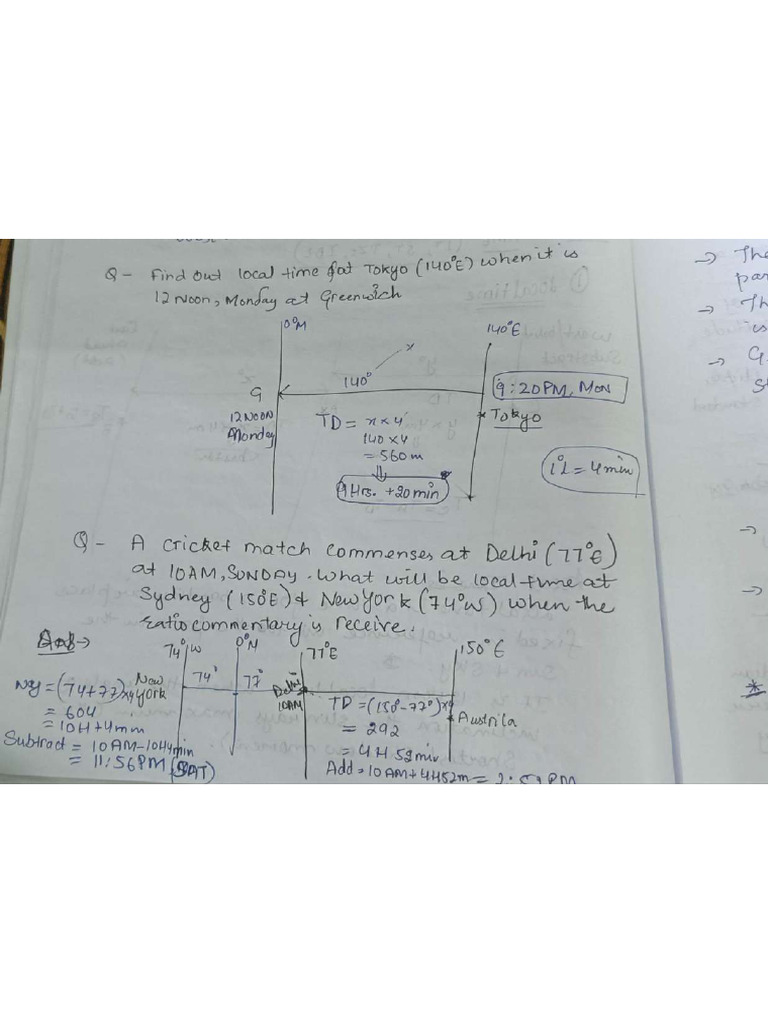 Q- Find out local time fat Tokyo (140°E) when it is
12 Noon, Monday at Greenwich
0°M
140°E
x
140°
G
12 NOON
Monday
9:20 PM, MON
Tokyo
TD = x × 4'
140 × 4
= 560 m
9 Hrs. + 20 min
1°L = 4 min
Q- A cricket match commenses at Delhi (77°E)
at 10AM, SUNDAY. What will be local time at
Sydney (150°E) & New York (74°W) when the
ratio commentary is receive.
Ans→
74°W
0°M
77°E
150°E
New
York
74°
77°
Delhi
10AM
Austrila
NY = (74+77)×4
= 604
= 10H + 4mm
Subtract = 10AM-10H4min
= 11:56PM (SAT)
TD = (150-77°)×4
= 292
= 4H 52min
Add = 10AM + 4H52m = 2:52PM
→ The
→ Th
is
→ G.
→
→